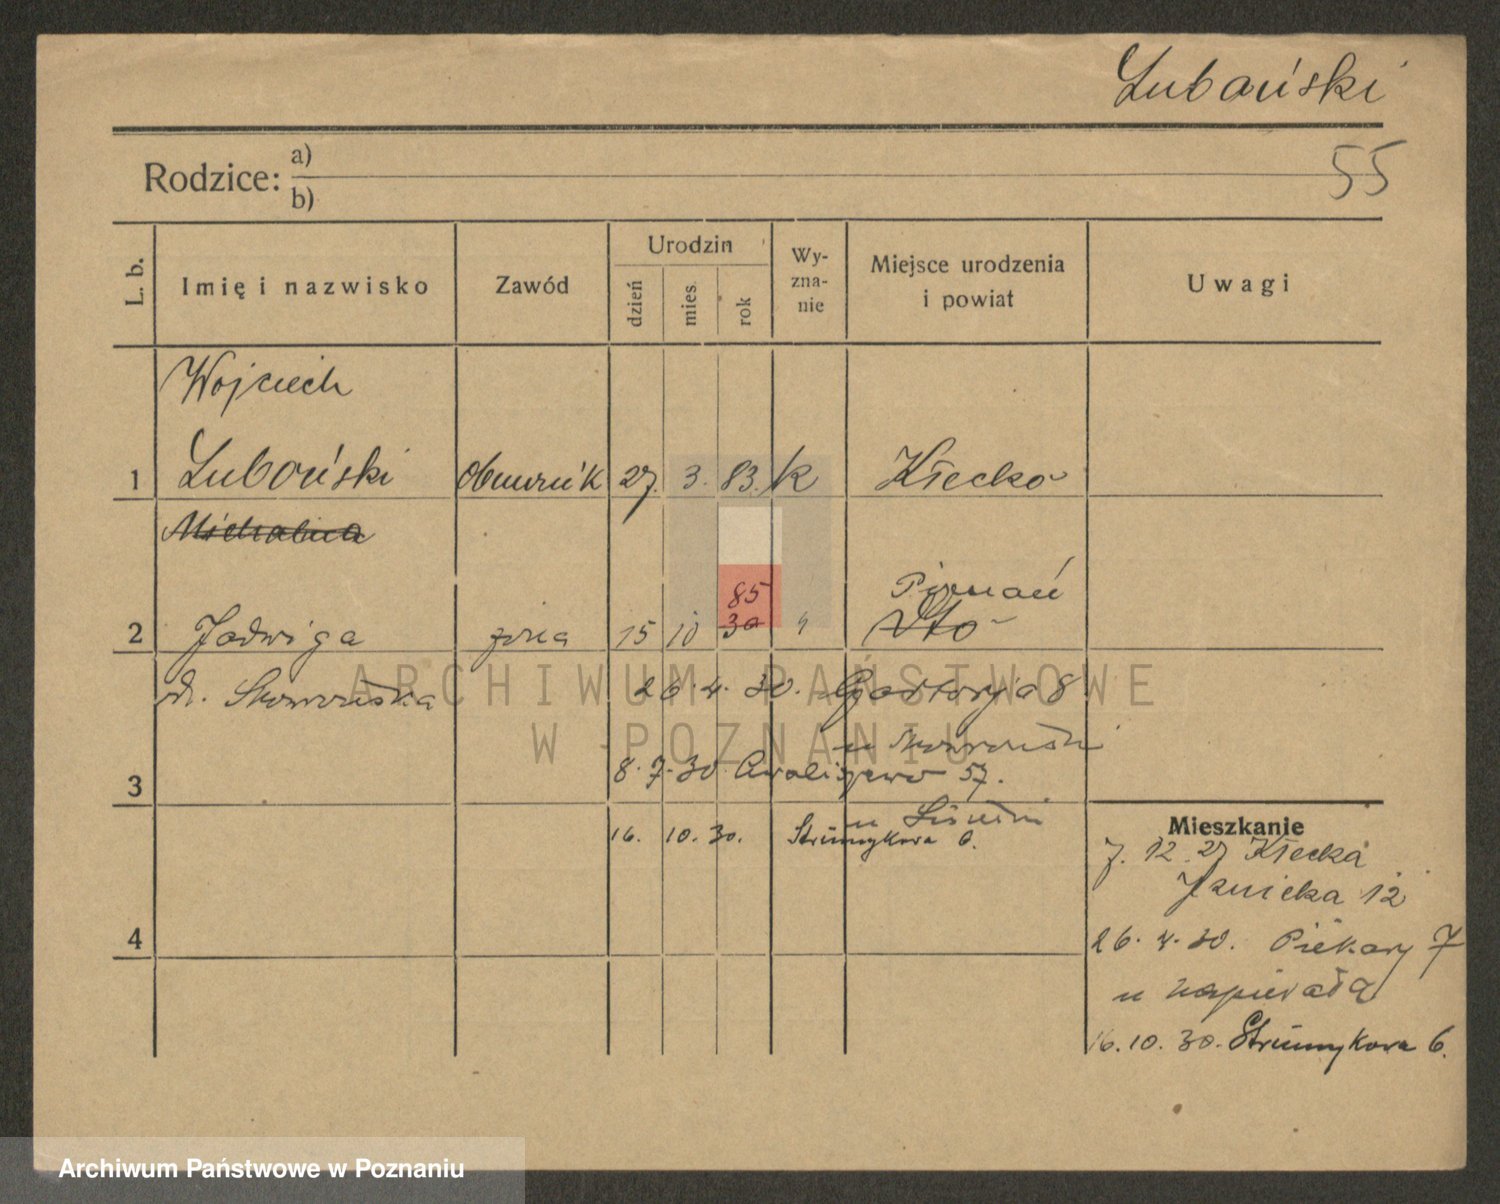 Lubański
55
Rodzice: a)
b)
L. b. Imię i nazwisko Zawód Urodzin dzień mies. rok Wy-zna-nie Miejsce urodzenia i powiat Uwagi
Wojciech
1 Lubański 27. 3. 83. k Kłecko
Michalina
85 Poznań
2 Jadwiga żona 15 10 30
ARCHIWUM PAŃSTWOWE
W POZNANIU
26. 4. 30. 8
3 8. 7. 30 57.
u
16. 10. 30. Strumykowa 6.
Mieszkanie
7. 12. 27 Kłecka
12
4
26. 4. 30. Piekary 7
u Napierałą
16. 10. 30. Strumykowa 6.
Archiwum Państwowe w Poznaniu